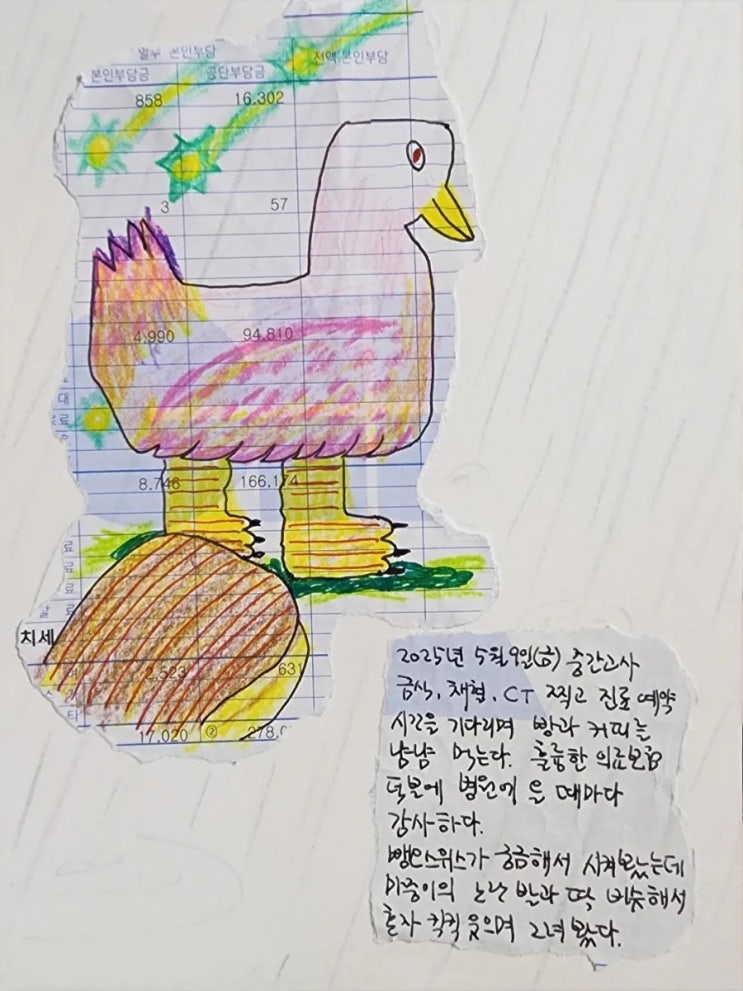 일부 본인부담
본인부담금 공단부담금 전액 본인부담
858 16.302
3 57
4,990 94.810
대
료
8.746 166.174
료
료
료
료
치세
2,523 631
타
17,020 ② 278.0
2025년 5월 9일(금) 중간고사
금식, 채혈, CT 찍고 진료 예약
시간을 기다리며 빵과 커피를
냠냠 먹는다. 훌륭한 의료보험
덕분에 병원에 올 때마다
감사하다.
뺑오스위스가 궁금해서 시켜봤는데
미중이의 노란 발과 딱 비슷해서
혼자 킥킥 웃으며 그려 봤다.